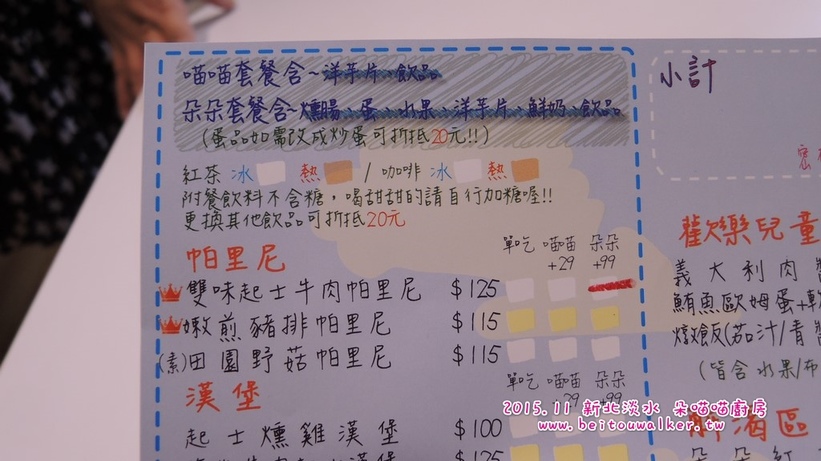 喵喵套餐含~洋芋片、飲品
朵朵套餐含~燻腸、蛋、水果、洋芋片、鮮奶、飲品
(蛋品如需改成炒蛋可折抵20元!!)
紅茶 冰 熱 / 咖啡 冰 熱
附餐飲料不含糖，喝甜甜的請自行加糖喔!!
更換其他飲品可折抵20元
帕里尼 單吃 喵喵+29 朵朵+99
雙味起士牛肉帕里尼 $125
嫩煎豬排帕里尼 $115
(素)田園野菇帕里尼 $115
漢堡 單吃 喵喵+29 朵朵+99
起士燻雞漢堡 $100
$125
小計
歡樂兒童
義大利肉醬
鮪魚歐姆蛋+軟
燉飯(茄汁/青醬
(皆含水果/布
2015.11 新北淡水 朵喵喵廚房
www.beitouwalker.tw